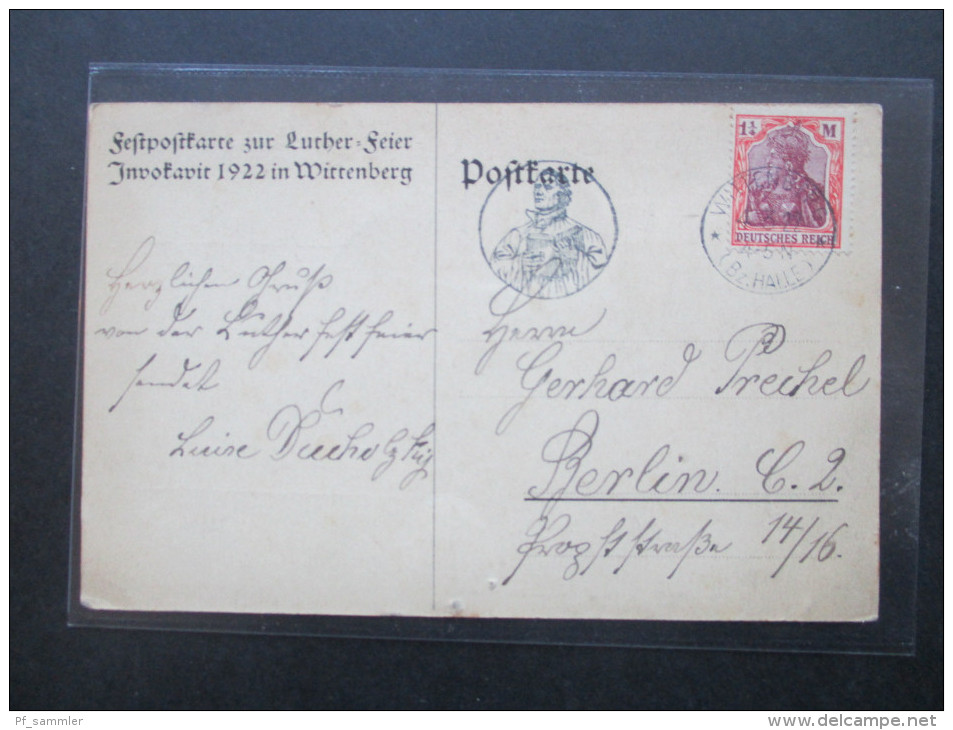 Festpostkarte zur Luther-Feier
Invokavit 1922 in Wittenberg
Postkarte
1¼ M
DEUTSCHES REICH
(Bz. HALLE)
Herzlichen Gruß
von der Lutherfestfeier
sendet
Luise
Herrn
Gerhard Prechel
Berlin. C. 2.
Propststraße 14/16.
Pf_sammler
www.delcampe.net